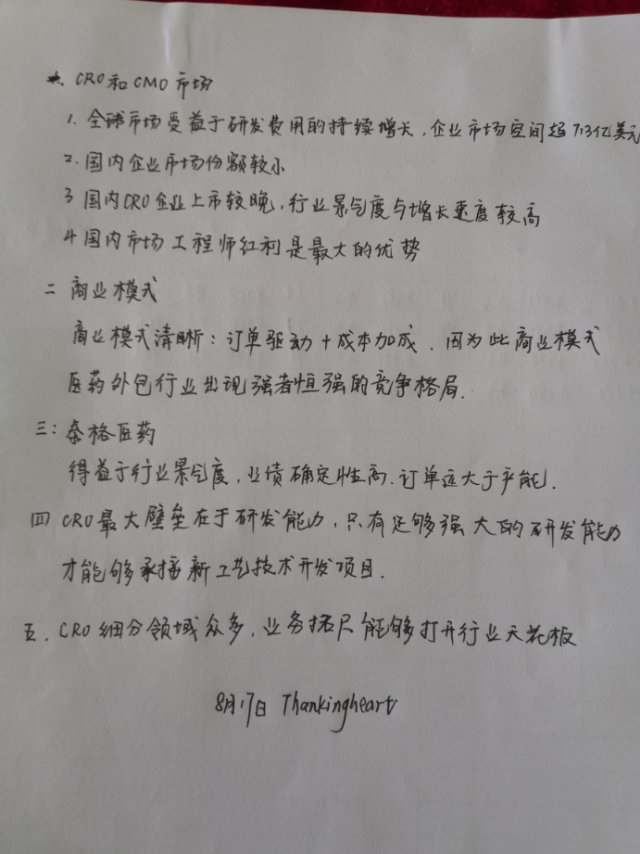 CRO和CMO市场
1. 全球市场受益于研发费用的持续增长，企业市场空间超713亿美元
2. 国内企业市场份额较小
3 国内CRO企业上市较晚，行业景气度与增长速度较高
4 国内市场工程师红利是最大的优势
二 商业模式
商业模式清晰：订单驱动＋成本加成．因为此商业模式
医药外包行业出现强者恒强的竞争格局．
三：泰格医药
得益于行业景气度，业绩确定性高．订单远大于产能．
四 CRO最大壁垒在于研发能力，只有足够强大的研发能力
才能够承接新工艺技术开发项目．
五．CRO细分领域众多，业务拓展能够打开行业天花板
8月17日 Thankingheart